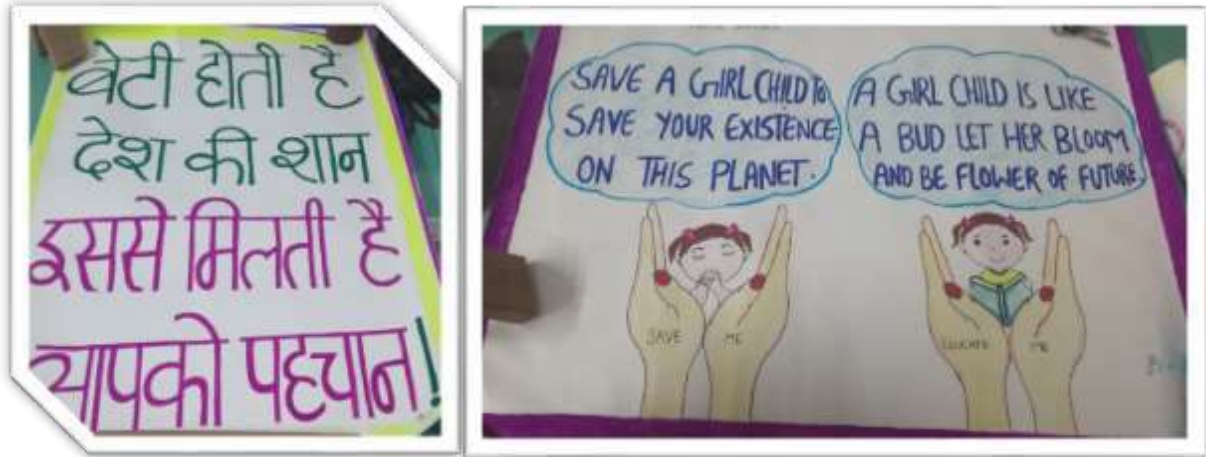 बेटी होती है
देश की शान
इससे मिलती है
आपको पहचान!
SAVE A GIRL CHILD TO
SAVE YOUR EXISTENCE
ON THIS PLANET.
A GIRL CHILD IS LIKE
A BUD LET HER BLOOM
AND BE FLOWER OF FUTURE.
SAVE ME
EDUCATE ME